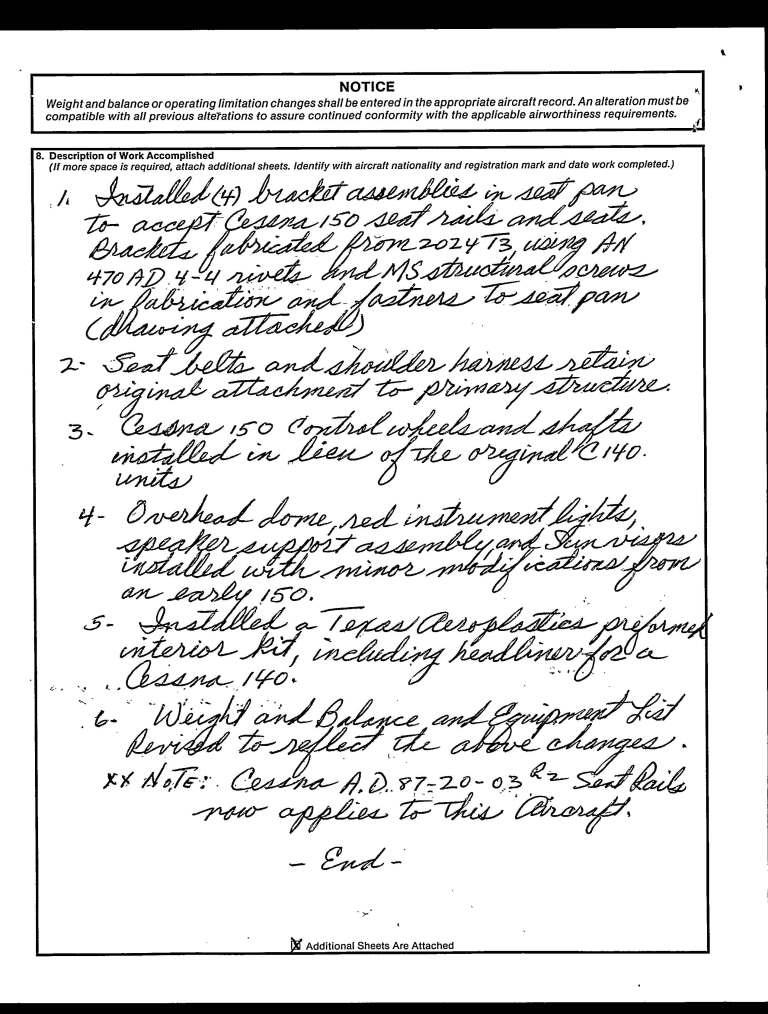 NOTICE
Weight and balance or operating limitation changes shall be entered in the appropriate aircraft record. An alteration must be
compatible with all previous alterations to assure continued conformity with the applicable airworthiness requirements.
8. Description of Work Accomplished
(If more space is required, attach additional sheets. Identify with aircraft nationality and registration mark and date work completed.)
1. Installed (4) bracket assemblies in seat pan
to accept Cessna 150 seat rails and seats.
Brackets fabricated from 2024 T3, using AN
470 AD 4-4 rivets and MS structural screws
in fabrication and fastners to seat pan
(drawing attached)
2- Seat belts and shoulder harness retain
original attachment to primary structure.
3- Cessna 150 Control wheels and shafts
installed in lieu of the original C140.
units
4- Overhead dome, red instrument lights,
speaker support assembly, and Sun visors
installed with minor modifications from
an early 150.
5- Installed a Texas Aeroplastics preformed
interior kit, including headliner for a
Cessna 140.
6- Weight and Balance and Equipment List
Revised to reflect the above changes.
XX NOTE: Cessna A.D. 87-20-03 R2 Seat Rails
now applies to this Aircraft.
- End -
Additional Sheets Are Attached